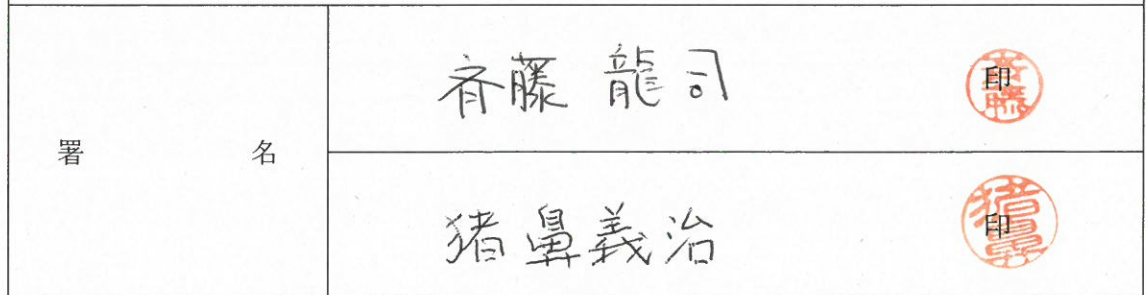 署名
斉藤 龍司 印
猪鼻義治 印